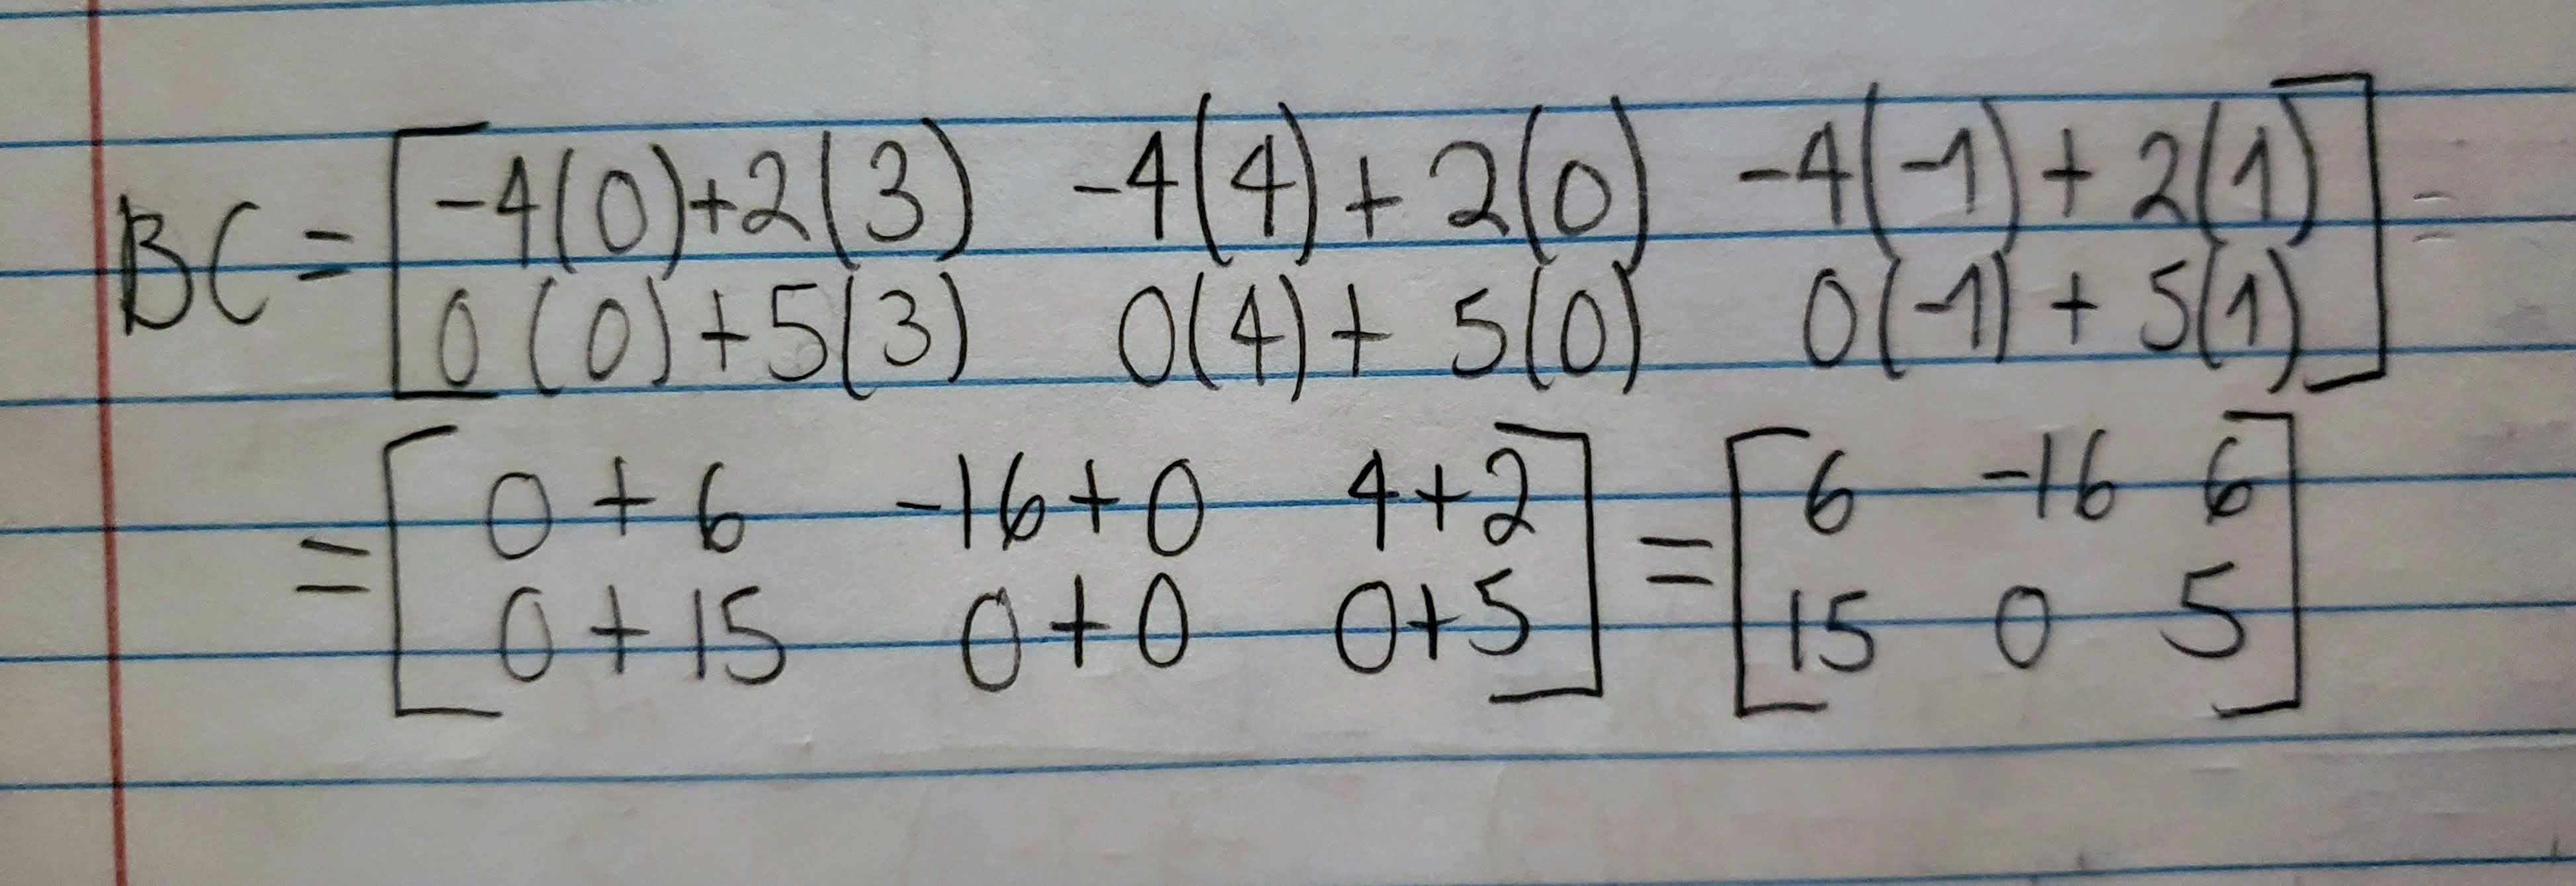 BC = [ -4(0)+2(3) -4(4)+2(0) -4(-1)+2(1) ] =
[ 0(0)+5(3) 0(4)+5(0) 0(-1)+5(1) ]
= [ 0+6 -16+0 4+2 ] = [ 6 -16 6 ]
[ 0+15 0+0 0+5 ] [ 15 0 5 ]